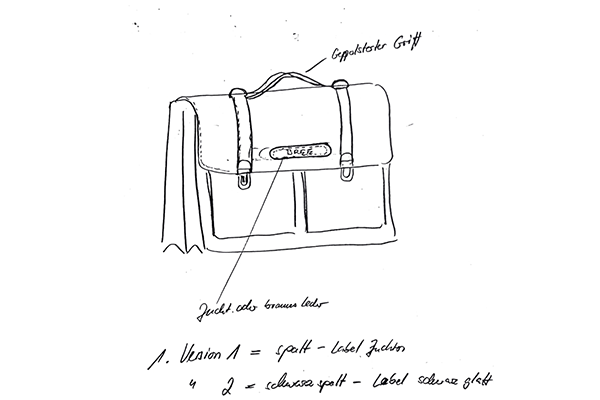 Geppolsterter Griff
BREE
Jucht. oder braunes leder
1. Version 1 = spalt - Label Juchten
" 2 = schwarzspalt - Label schwarz glatt